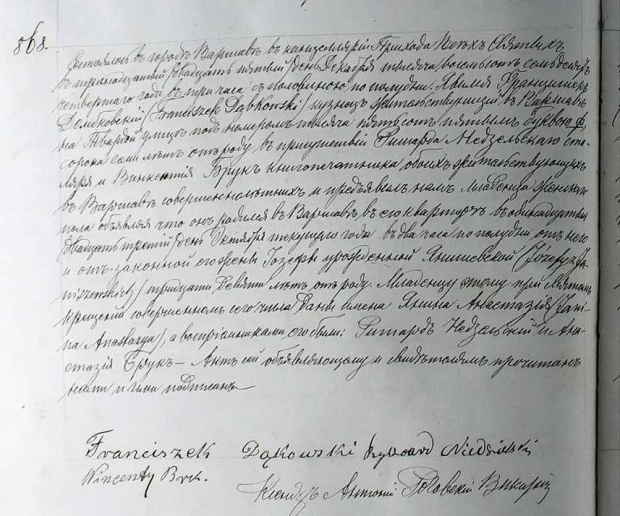 868.
Состоялось въ городѣ Варшавѣ въ канцеляріи Прихода Всѣхъ Святыхъ
въ тринадцатый /двадцать пятый/ день Декабря тысяча восемьсотъ семьдесятъ
четвертаго года въ три часа съ половиною по полудни. Явился Францишекъ
Домбковскій /Franciszek Dąbkowski/ кузнецъ жительствующій въ Варшавѣ
на Твардой улицѣ подъ номеромъ тысяча пятьсотъ пятымъ буквою
сорока семи лѣтъ отъ роду въ присутствіи Ришарда Недзельскаго сто-
ляра и Викентія Брукъ книгопечатника обоихъ жительствующихъ
въ Варшавѣ совершеннолѣтнихъ и предъявилъ намъ Младенца женскаго
пола объявляя что онъ родился въ Варшавѣ въ его квартирѣ въ
двадцать третій день Октября текущаго года въ два часа по полудни отъ него
и отъ законной его жены Іозефы урожденной Янишевской /Józefy z Ja-
niszewskich/ тридцати девяти лѣтъ отъ роду. Младенцу этому при святомъ
крещеніи совершенномъ сего числа даны имена Янина Анастазія /Jani-
na Anastazya/, а воспріемниками его были: Ришардъ Недзельскій и Ана-
стазія Брукъ – Актъ сей объявляющему и свидѣтелямъ прочитанъ
нами и ими подписанъ
Franciszek Dąkowski Ryszard Niedzielski
Wincenty Bruk.
Ксендзъ Антоній Викарій